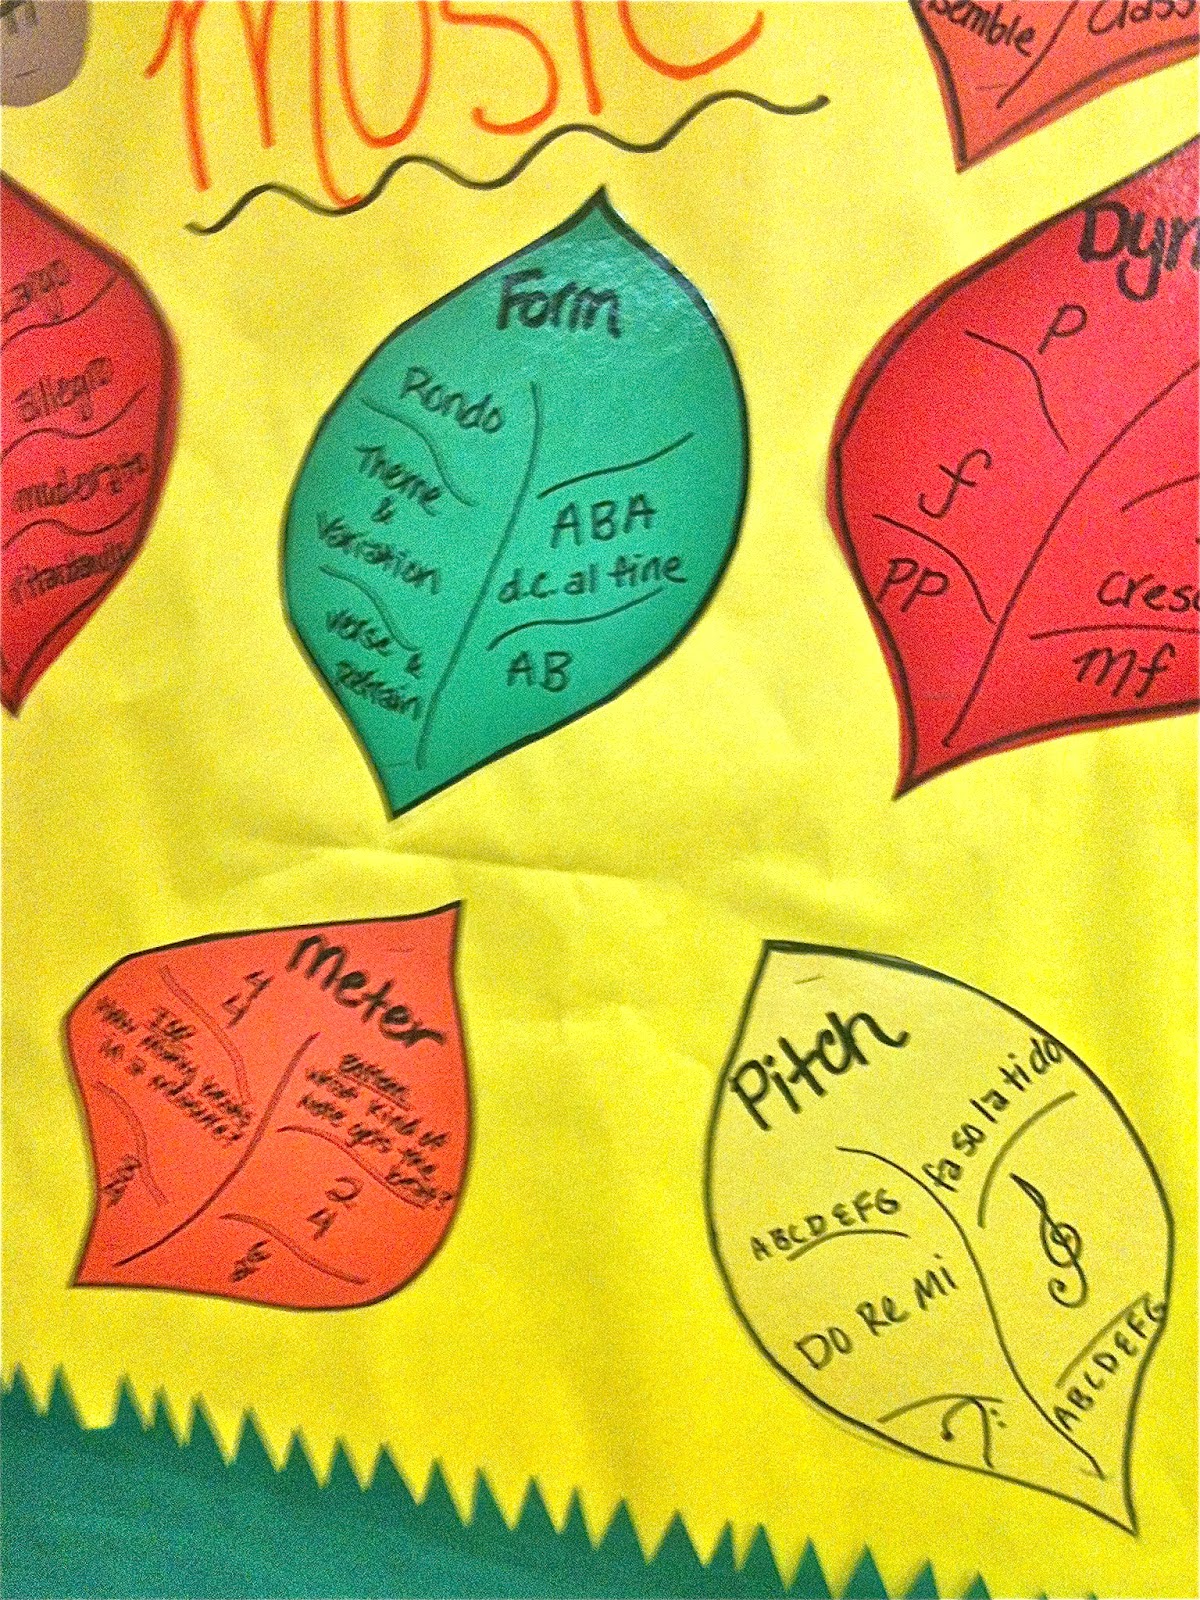 music
semble
Class
argo
allegro
moderato
ritardando
Form
Rondo
Theme
&
Variation
Verse &
refrain
ABA
d.c. al fine
AB
Dyn
p
f
pp
cres
mf
Meter
4
4
TOP:
how many beats
in a measure?
Bottom:
what kind of
note gets the
beat?
2
4
Pitch
fa so la ti do
ABCDEFG
DO Re Mi
ABCDEFG